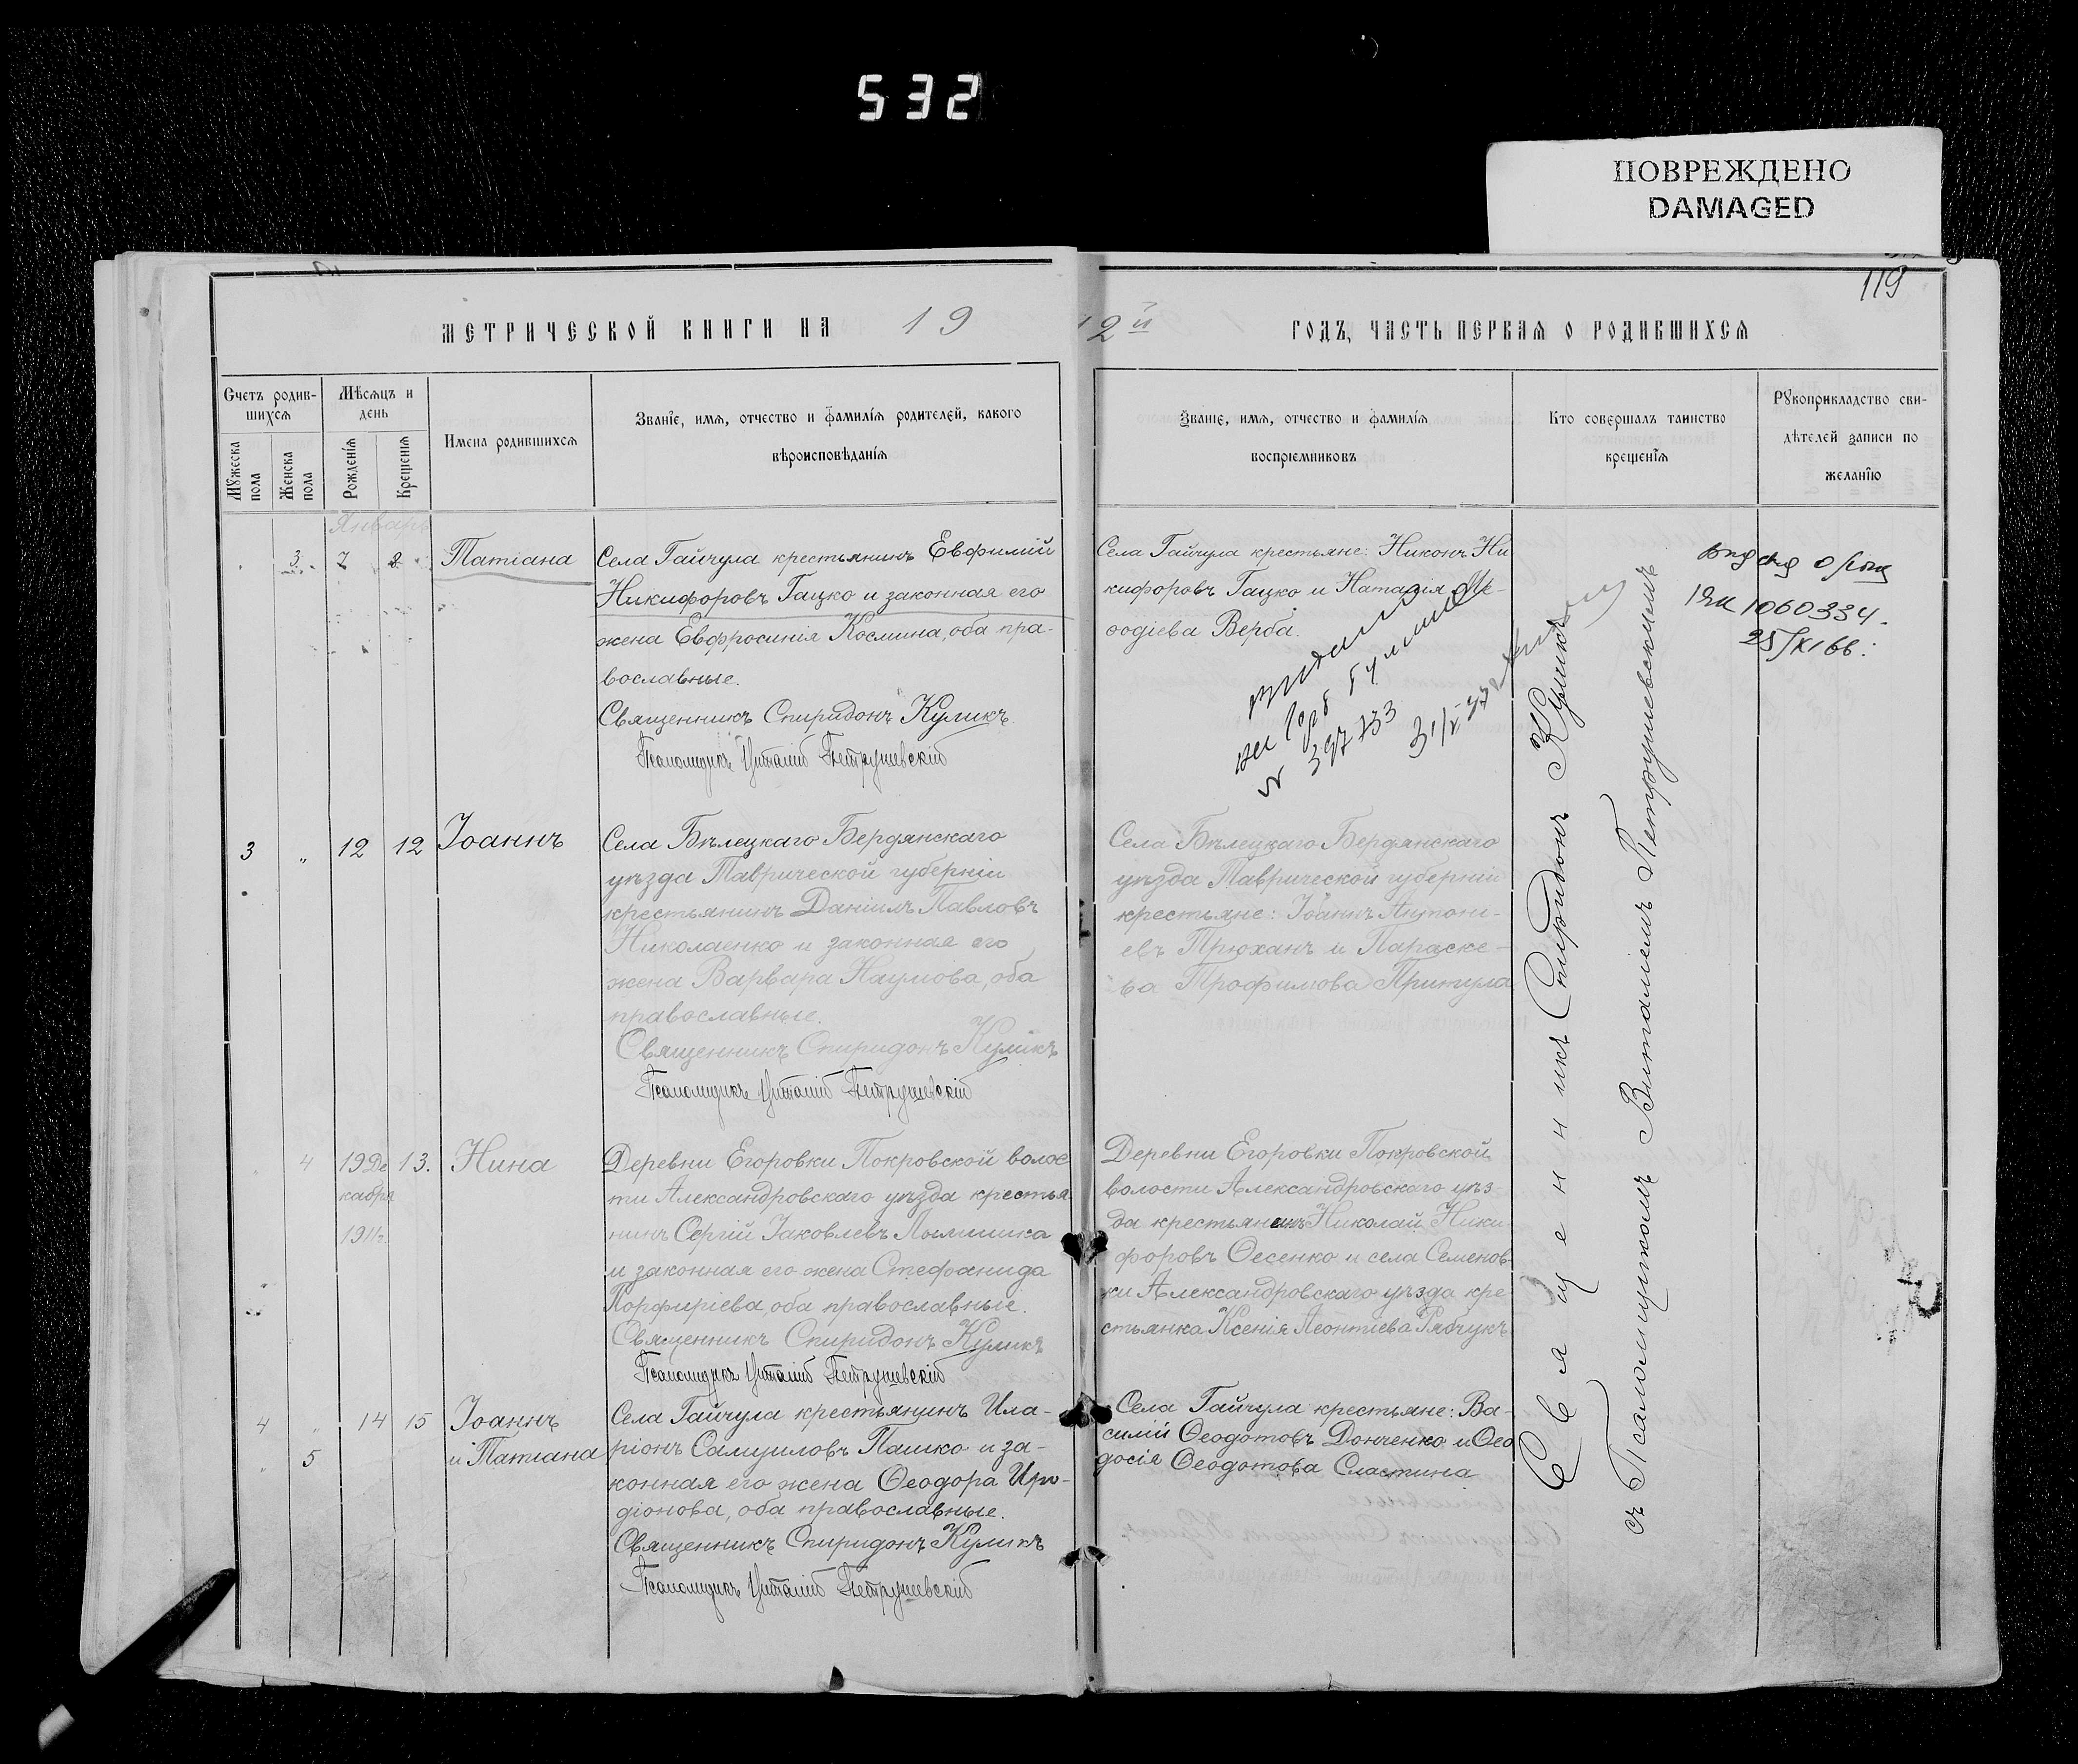 532
ПОВРЕЖДЕНО
DAMAGED
119
МЕТРИЧЕСКОЙ КНИГИ НА 19
12й ГОДЪ, ЧАСТЬ ПЕРВАЯ О РОДИВШИХСЯ
Счетъ родив-
шихся
Мужеска
пола
Женска
пола
Мѣсяцъ и
день
Рожденія
Крещенія
Имена родившихся
Званіе, имя, отчество и фамилія родителей, какого
вѣроисповѣданія
Званіе, имя, отчество и фамилія
воспріемниковъ
Кто совершалъ таинство
крещенія
Рукоприкладство сви-
дѣтелей записи по
желанію
Январь
3 7 8 Татіана
Села Гайчула крестьянинъ Евфимій
Никифоровъ Гацко и законная его
жена Евфросинія Космина, оба пра-
вославные.
Священникъ Спиридонъ Куликъ
Псаломщикъ Виталій Петрушевскій
Села Гайчула крестьяне: Никонъ Ни
кифоровъ Гацко и Наталія Ме-
ѳодіева Верба.
397733
1060334.
25/XI 66.
3 " 12 12 Іоаннъ
Села Бѣлецкаго Бердянскаго
уѣзда Таврической губерніи
крестьянинъ Даніилъ Павловъ
Николаенко и законная его
жена Варвара Наумова, оба
православные.
Священникъ Спиридонъ Куликъ
Псаломщикъ Виталій Петрушевскій
Села Бѣлецкаго Бердянскаго
уѣзда Таврической губерніи
крестьяне: Іоаннъ Антоні-
евъ Трюханъ и Параске-
ва Трофимова Притула
4 19 Де 13. Нина
кабря
1911г.
Деревни Егоровки Покровской волос
ти Александровскаго уѣзда крестья
нинъ Сергій Іаковлевъ
и законная его жена Стефанида
Порфиріева, оба православные.
Священникъ Спиридонъ Куликъ
Псаломщикъ Виталій Петрушевскій
Деревни Егоровки Покровской
волости Александровскаго уѣз-
да крестьянинъ Николай Ники
форовъ Ѳесенко и села Семенов-
ки Александровскаго уѣзда кре
стьянка Ксенія Леонтіева Рябчукъ
4 " 14 15 Іоаннъ
" 5 и Татіана
Села Гайчула крестьянинъ Ила-
ріонъ Самуиловъ Пашко и за-
конная его жена Ѳеодора Иро-
діонова, оба православные.
Священникъ Спиридонъ Куликъ
Псаломщикъ Виталій Петрушевскій
Села Гайчула крестьяне: Ва-
силій Ѳеодотовъ Донченко и Ѳео
досія Ѳеодотова Сластина
Священникъ Спиридонъ Куликъ
съ Псаломщикомъ Виталіемъ Петрушевскимъ